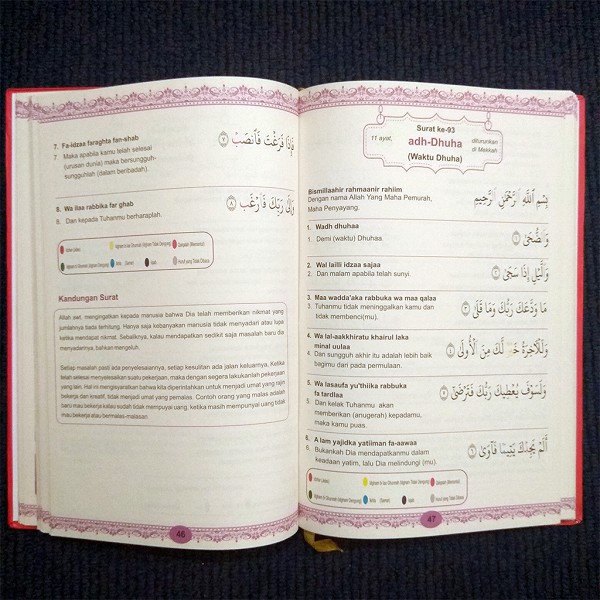 7. Fa-idzaa faraghta fan-shab
فَإِذَا فَرَغْتَ فَٱنصَبْ ٧
7 Maka apabila kamu telah selesai
(urusan dunia) maka bersungguh-
sungguhlah (dalam beribadah).
8. Wa ilaa rabbika far ghab
وَإِلَىٰ رَبِّكَ فَٱرْغَب ٨
8. Dan kepada Tuhanmu berharaplah.
Kandungan Surat
Allah swt. mengingatkan kepada manusia bahwa Dia telah memberikan nikmat yang
jumlahnya tiada terhitung. Hanya saja kebanyakan manusia tidak menyadari atau lupa
ketika mendapat nikmat. Sebaliknya, kalau mendapatkan sedikit saja masalah baru dia
menyadarinya, bahkan mengeluh.
Setiap masalah pasti ada penyelesaiannya, setiap kesulitan ada jalan keluarnya. Ketika
telah selesai menyelesaikan suatu pekerjaan, maka dengan segera lakukanlah pekerjaan
yang lain. Hal ini mengisyaratkan bahwa kita diperintahkan untuk menjadi umat yang rajin
bekerja dan kreatif, tidak menjadi umat yang pemalas. Contoh orang yang malas adalah
baru mau bekerja kalau sudah tidak mempuyai uang; ketika masih mempunyai uang tidak
mau bekerja atau bermalas-malasan.
46
Surat ke-93
11 ayat, adh-Dhuha diturunkan
di Mekkah
(Waktu Dhuha)
Bismillaahir rahmaanir rahiim
بِسْمِ ٱللَّهِ ٱلرَّحْمَٰنِ ٱلرَّحِيمِ
Dengan nama Allah Yang Maha Pemurah,
Maha Penyayang.
1. Wadh dhuhaa
وَٱلضُّحَىٰ ١
1. Demi (waktu) Dhuhaa.
2. Wal lailli idzaa sajaa
وَٱلَّيْلِ إِذَا سَجَىٰ ٢
2. Dan malam apabila telah sunyi.
3. Maa wadda'aka rabbuka wa maa qalaa
مَا وَدَّعَكَ رَبُّكَ وَمَا قَلَىٰ ٣
3. Tuhanmu tidak meninggalkan kamu dan
tidak membenci(mu).
4. Wa lal-aakkhiratu khairul laka
minal uulaa
وَلَلْءَاخِرَةُ خَيْرٌ لَّكَ مِنَ ٱلْأُولَىٰ ٤
4. Dan sungguh akhir itu adalah lebih baik
bagimu dari pada permulaan.
5. Wa lasaufa yu'thiika rabbuka
fa tardlaa
وَلَسَوْفَ يُعْطِيكَ رَبُّكَ فَتَرْضَىٰ ٥
5. Dan kelak Tuhanmu akan
memberikan (anugerah) kepadamu,
maka kamu puas.
6. A lam yajidka yatiiman fa-aawaa
أَلَمْ يَجِدْكَ يَتِيمًا فَـَٔاوَىٰ ٦
6. Bukankah Dia mendapatkanmu dalam
keadaan yatim, lalu Dia melindungi (mu).
47